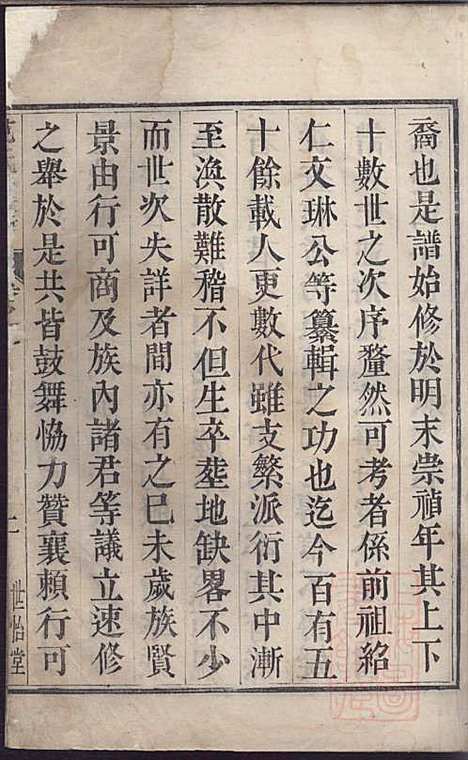 裔也是譜始修於明末崇禎年其上下
十數世之次序釐然可考者係前祖紹
仁文琳公等纂輯之功也迄今百有五
十餘載人更數代雖支繁派衍其中漸
至渙散難稽不但生卒塟地缺畧不少
而世次失詳者間亦有之已未歲族賢
景由行可商及族內諸君等議立速修
之舉於是共皆鼓舞恊力贊襄賴行可
世怡堂